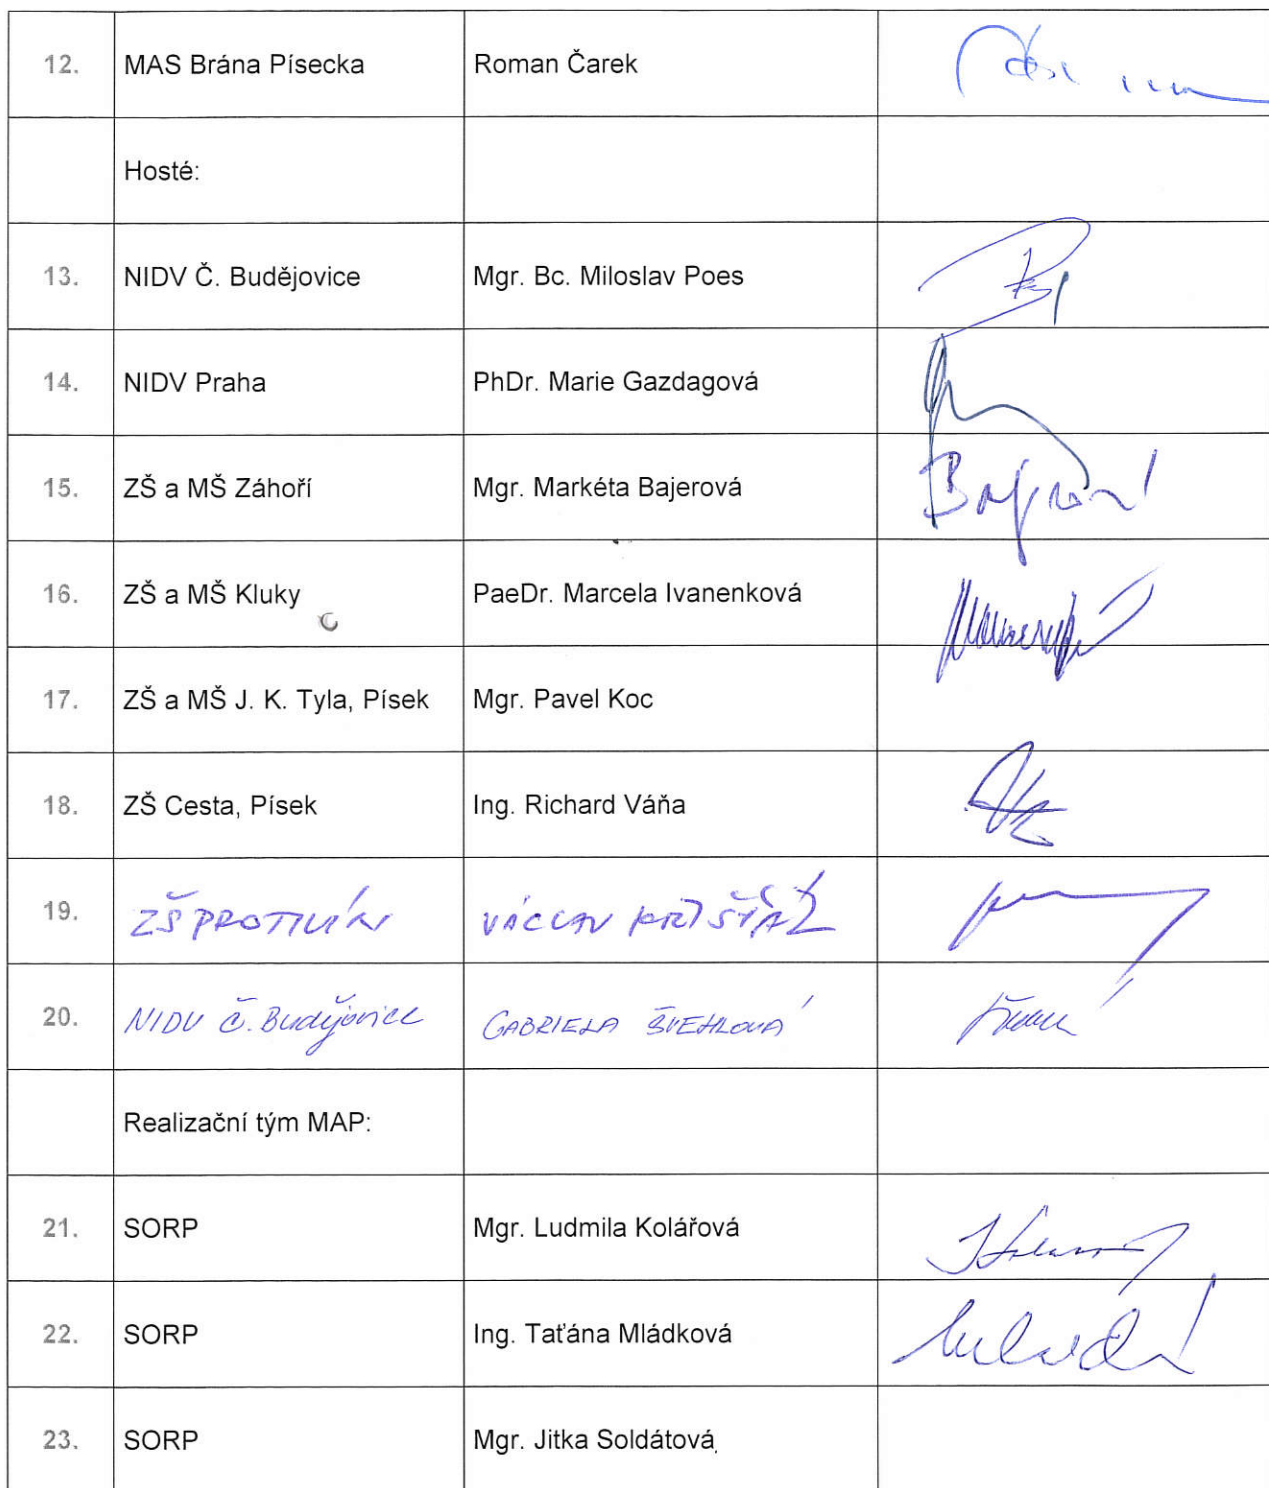 12. MAS Brána Písecka Roman Čarek
Hosté:
13. NIDV Č. Budějovice Mgr. Bc. Miloslav Poes
14. NIDV Praha PhDr. Marie Gazdagová
15. ZŠ a MŠ Záhoří Mgr. Markéta Bajerová
16. ZŠ a MŠ Kluky PaeDr. Marcela Ivanenková
17. ZŠ a MŠ J. K. Tyla, Písek Mgr. Pavel Koc
18. ZŠ Cesta, Písek Ing. Richard Váňa
19. ZŠ PROTIVÍN VÁCLAV KŘIŠŤÁL
20. NIDV Č. Budějovice GABRIELA ŠVEHLOVÁ
Realizační tým MAP:
21. SORP Mgr. Ludmila Kolářová
22. SORP Ing. Taťána Mládková
23. SORP Mgr. Jitka Soldátová